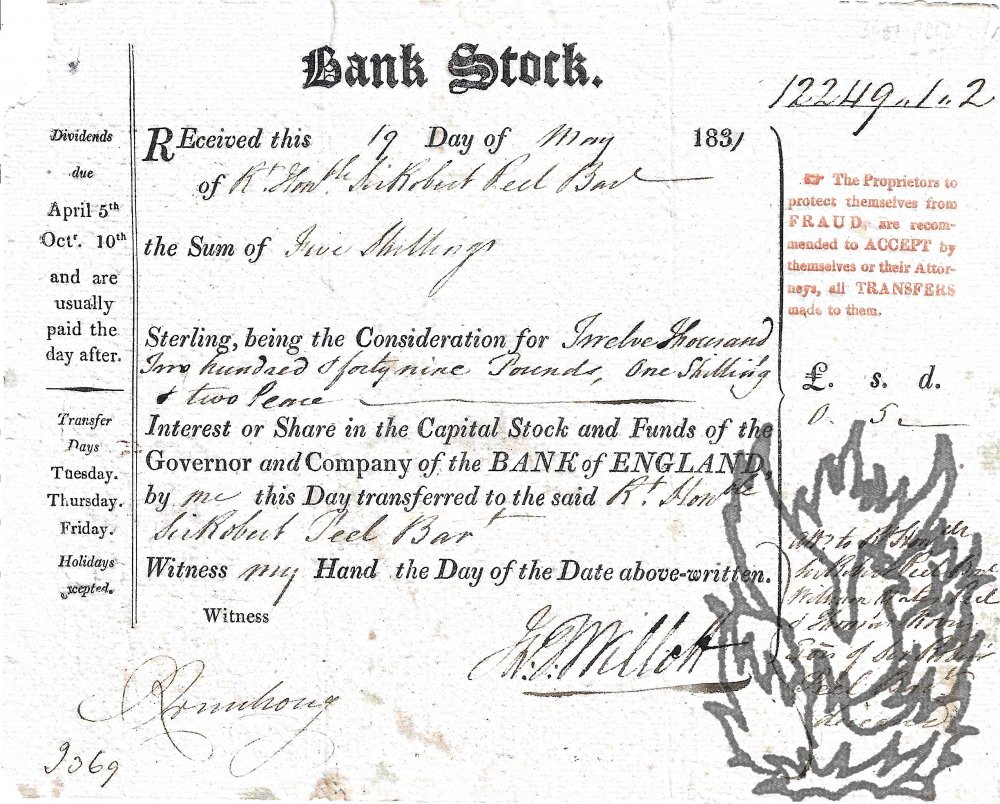 Bank Stock.
12249,,1,,2
Dividends
due
April 5th
Octr. 10th
and are
usually
paid the
day after.
Transfer
Days
Tuesday.
Thursday.
Friday.
Holidays
xcepted.
REceived this 19 Day of May 1831
of Rt. Honble. Sir Robert Peel Bart
the Sum of Five Shillings
Sterling, being the Consideration for Twelve Thousand
Two hundred & forty nine Pounds, One Shilling
& two Pence
Interest or Share in the Capital Stock and Funds of the
Governor and Company of the BANK of ENGLAND,
by me this Day transferred to the said Rt. Honble
Sir Robert Peel Bart
Witness my Hand the Day of the Date above-written.
Witness
☞ The Proprietors to
protect themselves from
FRAUD, are recom-
mended to ACCEPT by
themselves or their Attor-
neys, all TRANSFERS
made to them.
£. s. d.
0. 5
to Rt Honble
Sir Robert Peel Bart
William Peel
& Thomas
of Sir Robert
Peel Bart
deceased
9369